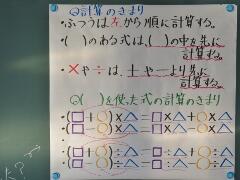 ◎計算のきまり
・ふつうは左から順に計算する。
・( )のある式は、( )の中を先に
計算する。
・×や÷は、+や−より先に
計算する。
◎( )を使った式の計算のきまり
・(□+○)×△=□×△+○×△
(□−○)×△=□×△−○×△
・(□+○)÷△=□÷△+○÷△
(□−○)÷△=□÷△−○÷△